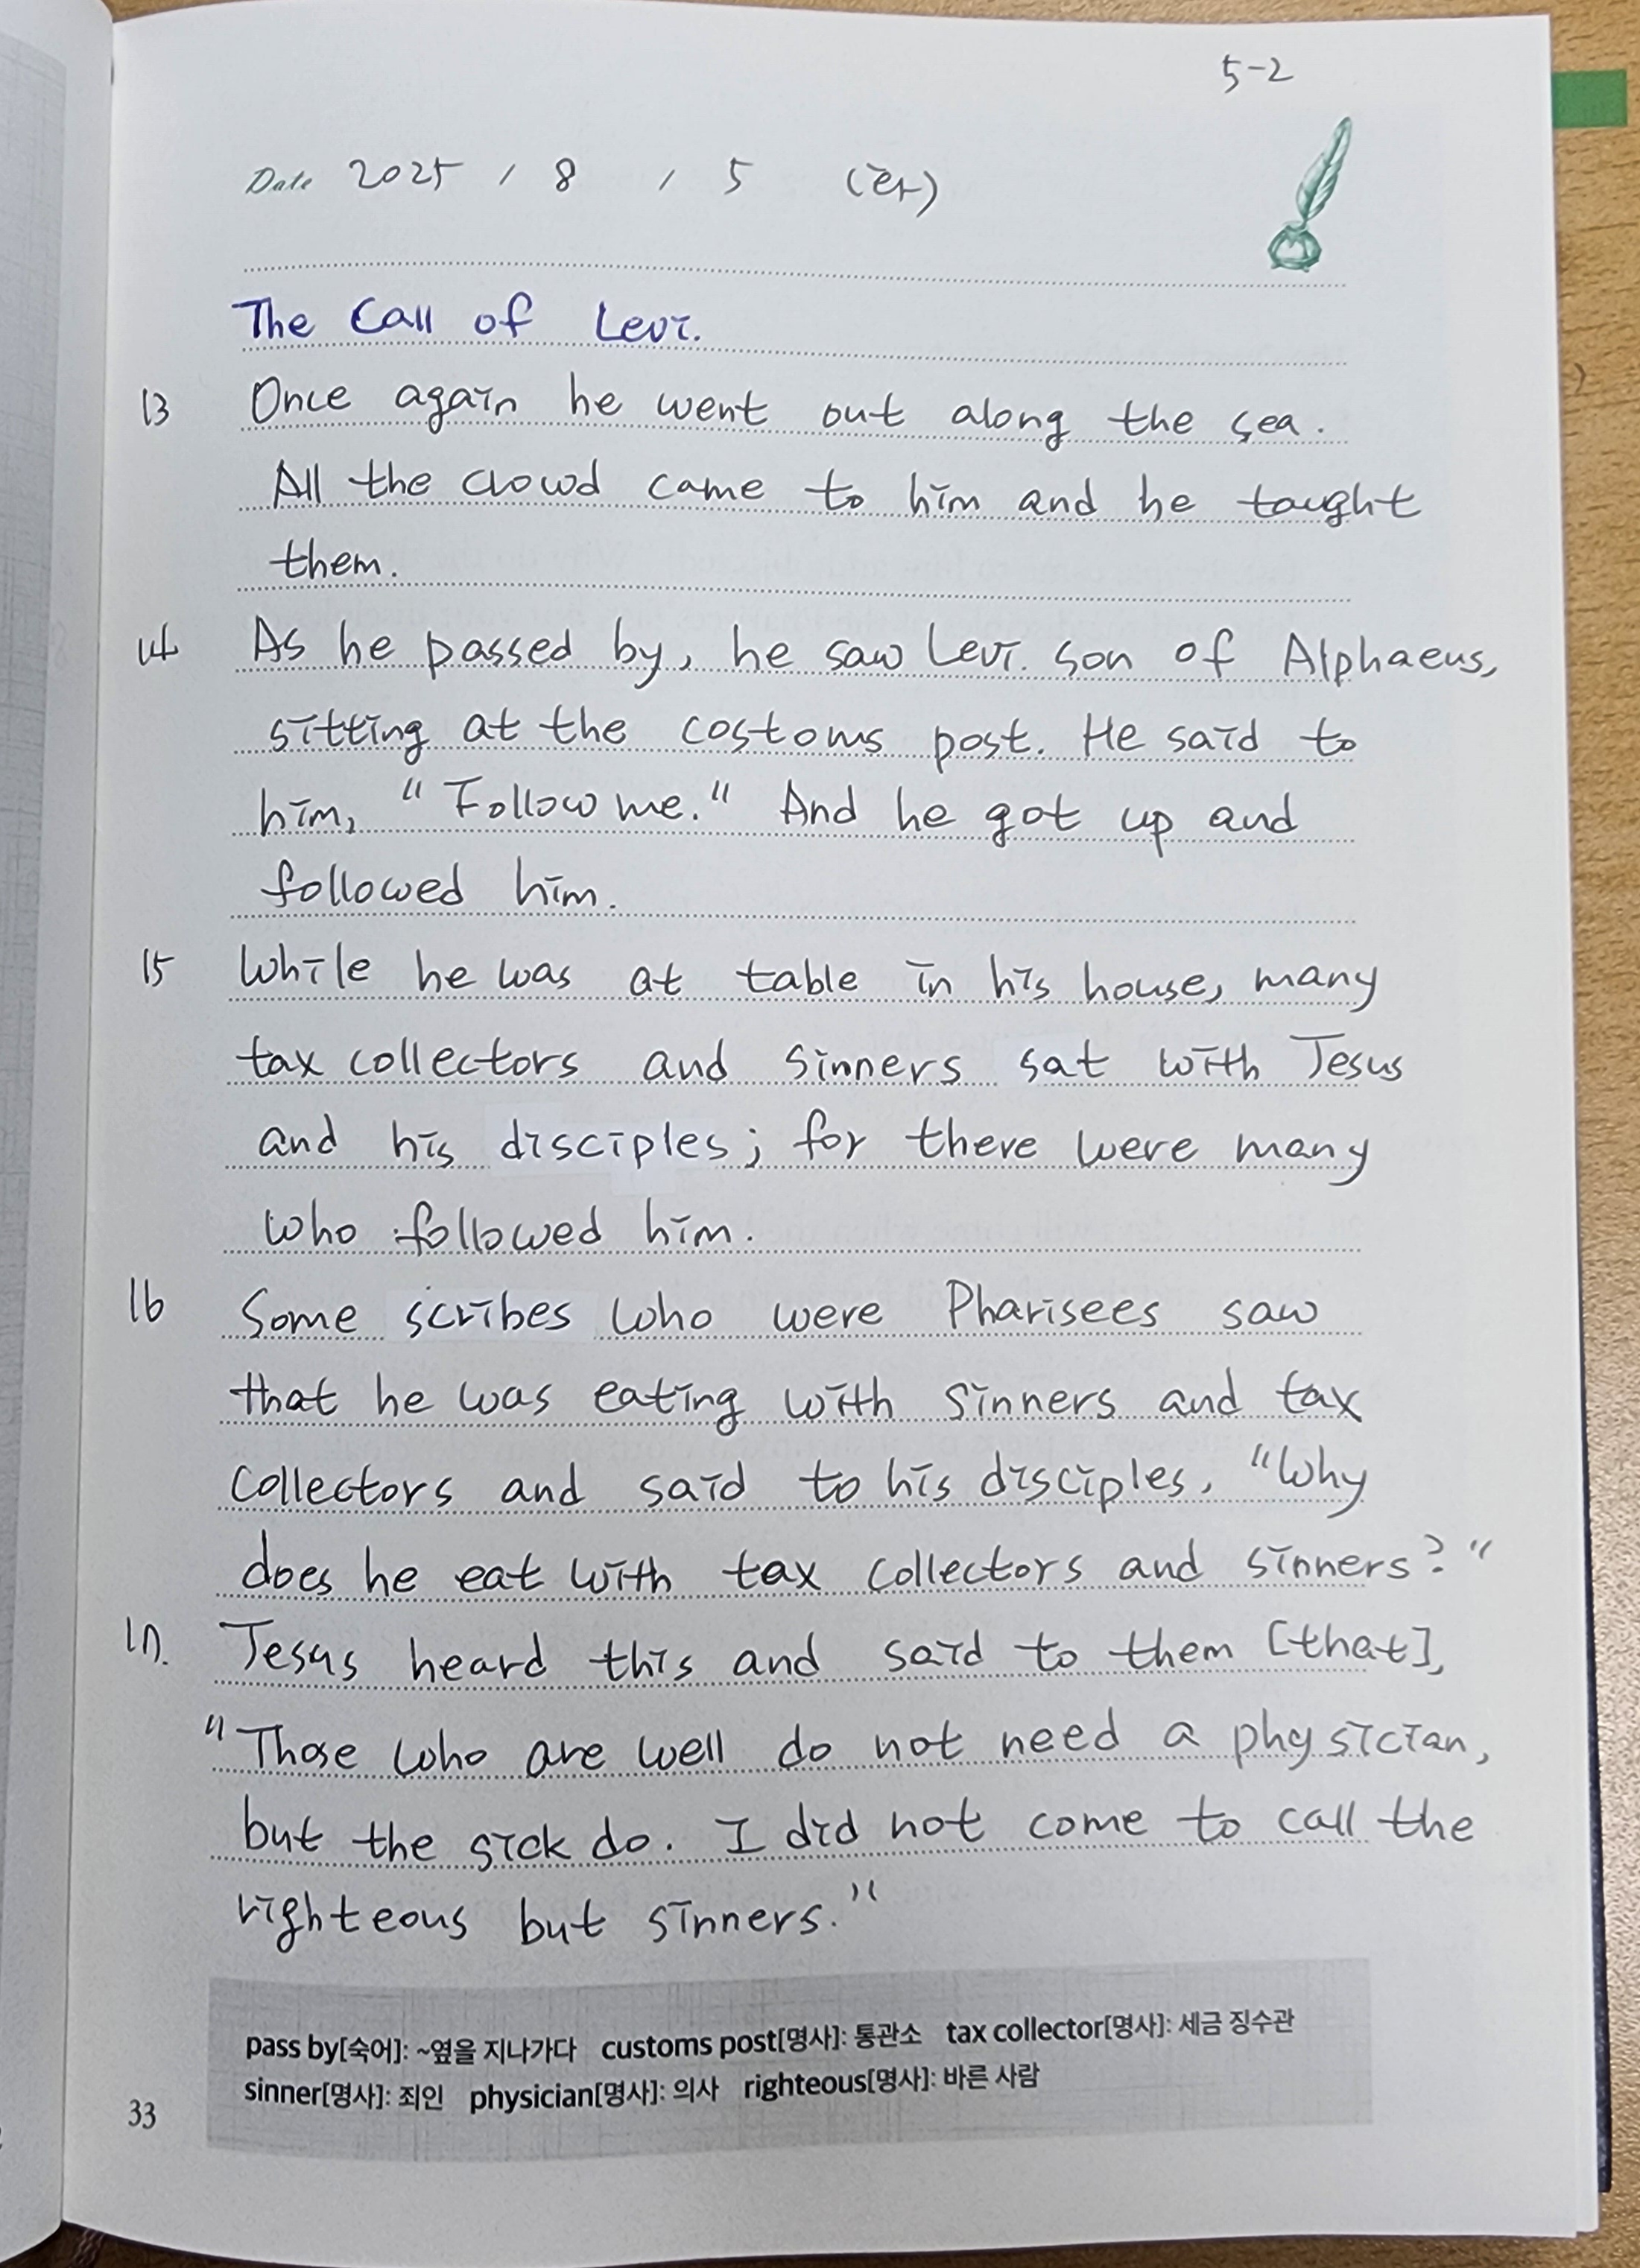 5-2
Date 2025 / 8 / 5 (화)
The Call of Levi.
13 Once again he went out along the sea.
All the clowd came to him and he taught
them.
14 As he passed by, he saw Levi. son of Alphaeus,
sitting at the costoms post. He said to
him, "Follow me." And he got up and
followed him.
15 While he was at table in his house, many
tax collectors and sinners sat with Jesus
and his disciples; for there were many
who followed him.
16 Some scribes who were Pharisees saw
that he was eating with sinners and tax
collectors and said to his disciples, "Why
does he eat with tax collectors and sinners?"
17. Jesus heard this and said to them [that],
"Those who are well do not need a physician,
but the sick do. I did not come to call the
righteous but sinners."
pass by[숙어]: ~옆을 지나가다 customs post[명사]: 통관소 tax collector[명사]: 세금 징수관
sinner[명사]: 죄인 physician[명사]: 의사 righteous[명사]: 바른 사람
33